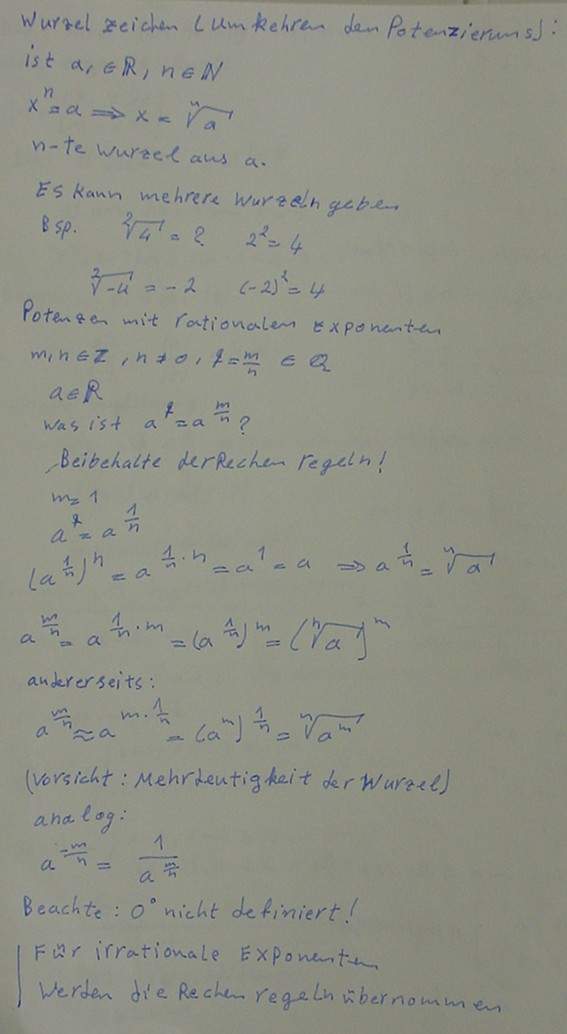 Wurzel zeichen (Umkehren den Potenzierung):
ist a, ∈ ℝ, n ∈ ℕ
xⁿ = a ⟹ x = ⁿ√a
n-te Wurzel aus a.
Es kann mehrere Wurzeln geben
Bsp. ²√4 = 2 2² = 4
²√-4 = -2 (-2)² = 4
Potenzen mit rationalen Exponenten
m, n ∈ ℤ, n ≠ 0, q = m/n ∈ ℚ
a ∈ ℝ
Was ist a^q = a^(m/n) ?
Beibehalte der Rechen regeln!
m = 1
a^q = a^(1/n)
(a^(1/n))^n = a^(1/n · n) = a^1 = a ⟹ a^(1/n) = ⁿ√a
a^(m/n) = a^(1/n · m) = (a^(1/n))^m = (ⁿ√a)^m
andererseits:
a^(m/n) ≈ a^(m · 1/n) = (a^m)^(1/n) = ⁿ√a^m
(Vorsicht: Mehrdeutigkeit der Wurzel)
analog:
a^(-m/n) = 1/a^(m/n)
Beachte: 0° nicht definiert!
Für irrationale Exponenten
Werden die Rechen regeln übernommen